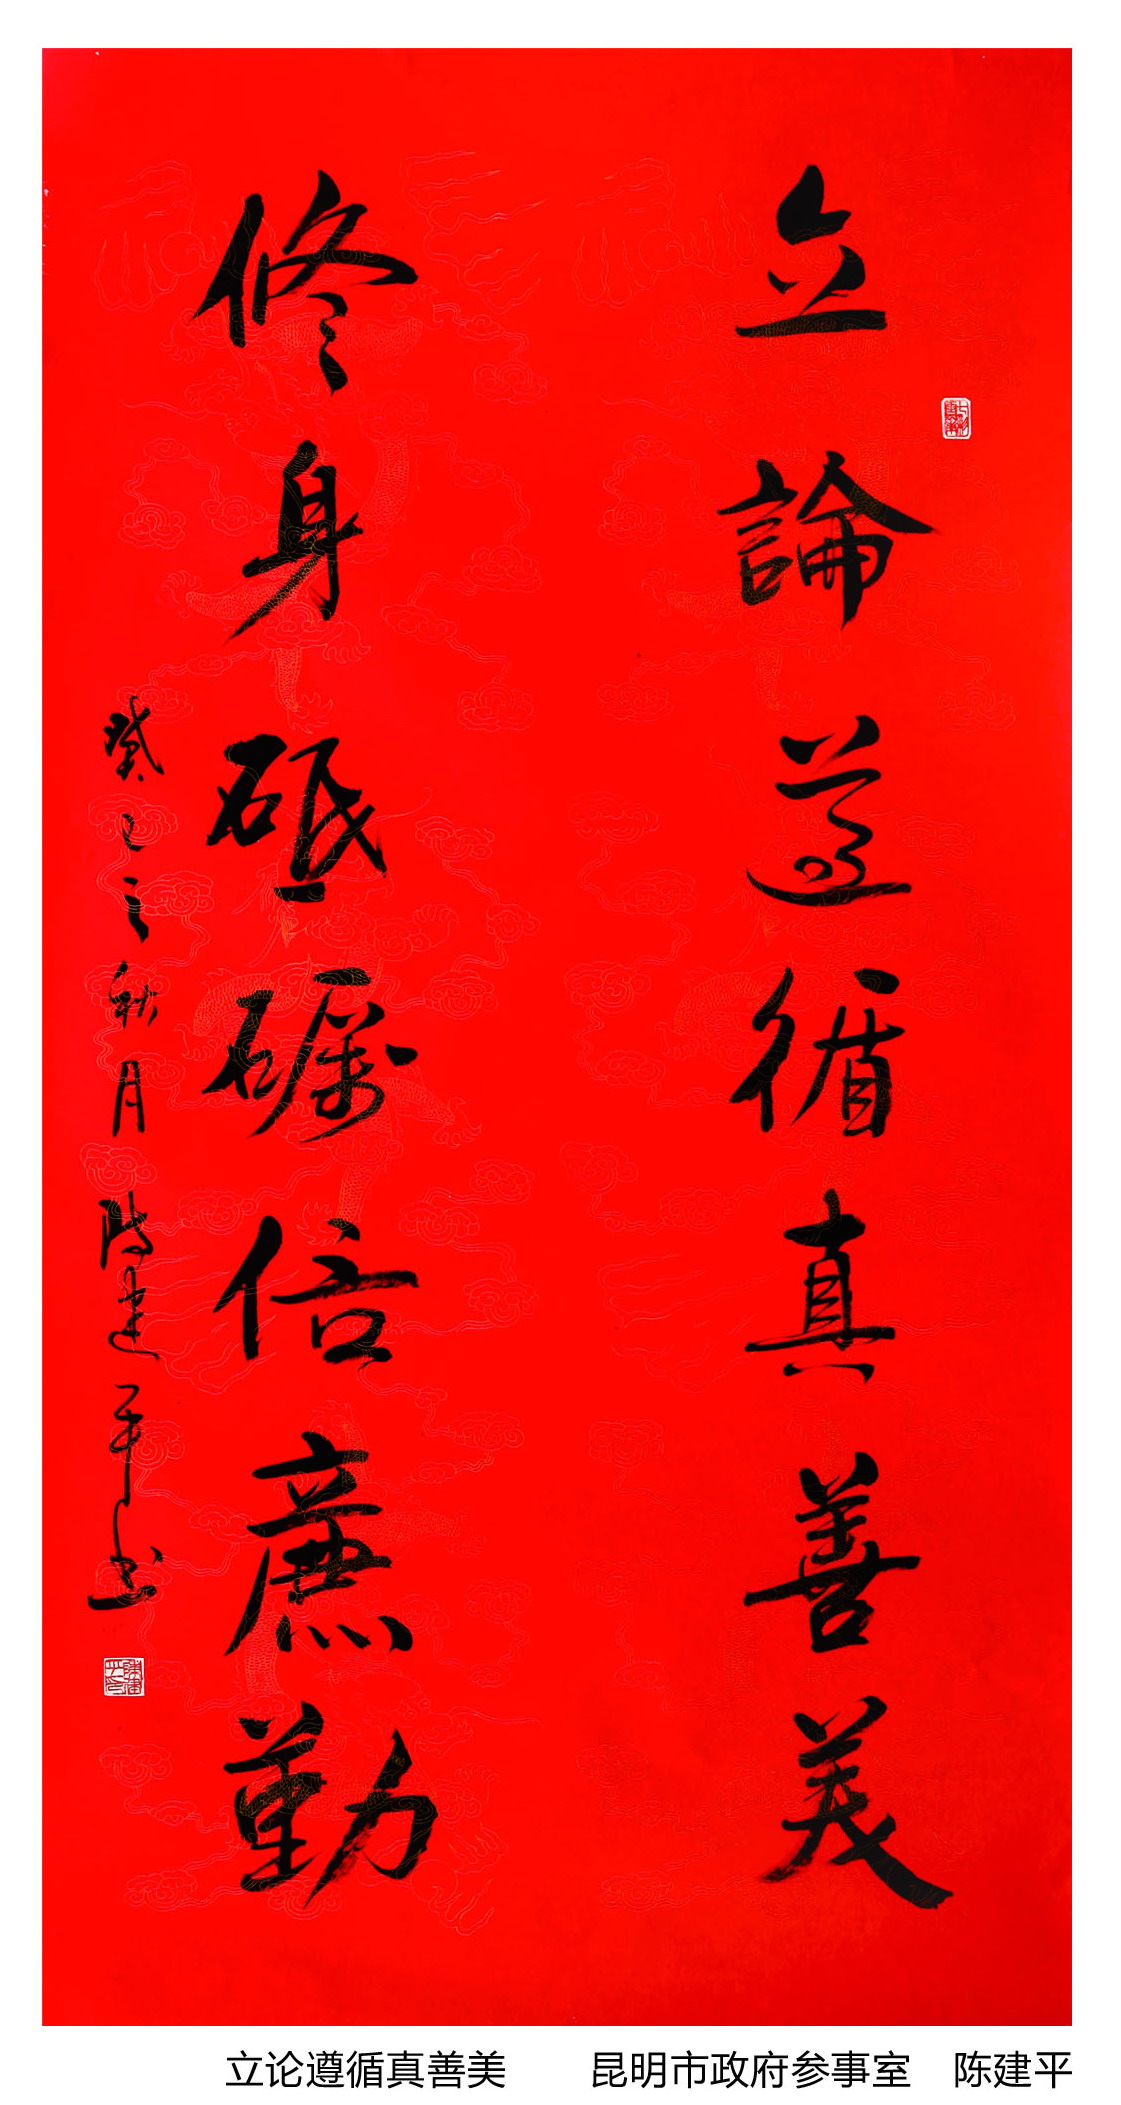 立論遵循真善美
修身砥礪信廉勤
癸巳之秋月陈建平书
立论遵循真善美 昆明市政府参事室 陈建平